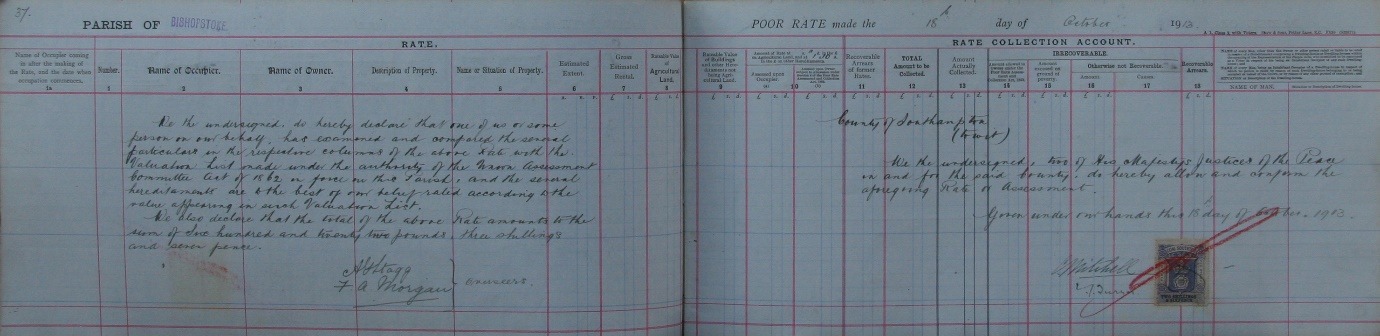 37.
PARISH OF BISHOPSTOKE
RATE.
Name of Occupier coming in after the making of the Rate, and the date when occupation commences.
1a
Number.
1
Name of Occupier.
2
Name of Owner.
3
Description of Property.
4
Name or Situation of Property.
5
Estimated Extent.
6
Gross Estimated Rental.
7
Rateable Value of Agricultural Land.
8
We the undersigned, do hereby declare that one of us or some
person on our behalf, has examined and compared the several
particulars in the respective columns of the above Rate with the
Valuation List made under the authority of the Union Assessment
Committee Act of 1862 in force in this Parish, and the several
hereditaments are to the best of our belief rated according to the
value appearing in such Valuation List.
We also declare that the total of the above Rate amounts to the
sum of Six hundred and twenty two pounds, three shillings
and seven pence.
A Stagg
F A Morgan
Overseers.
POOR RATE made the 18th day of October 1913.
RATE COLLECTION ACCOUNT.
Rateable Value of Buildings and other Hereditaments not being Agricultural Land.
9
10
Recoverable Arrears of former Rates.
11
TOTAL Amount to be Collected.
12
Amount Actually Collected.
13
IRRECOVERABLE.
14
15
Otherwise not Recoverable
Amount.
16
Causes.
17
Recoverable Arrears.
18
NAME OF MAN.
County of Southampton
(to wit)
We the undersigned, two of His Majesty's Justices of the Peace
in and for the said County, do hereby allow and confirm the
aforegoing Rate or Assessment.
Given under our hands this 18th day of October, 1913.
Mitchell
TWO SHILLINGS